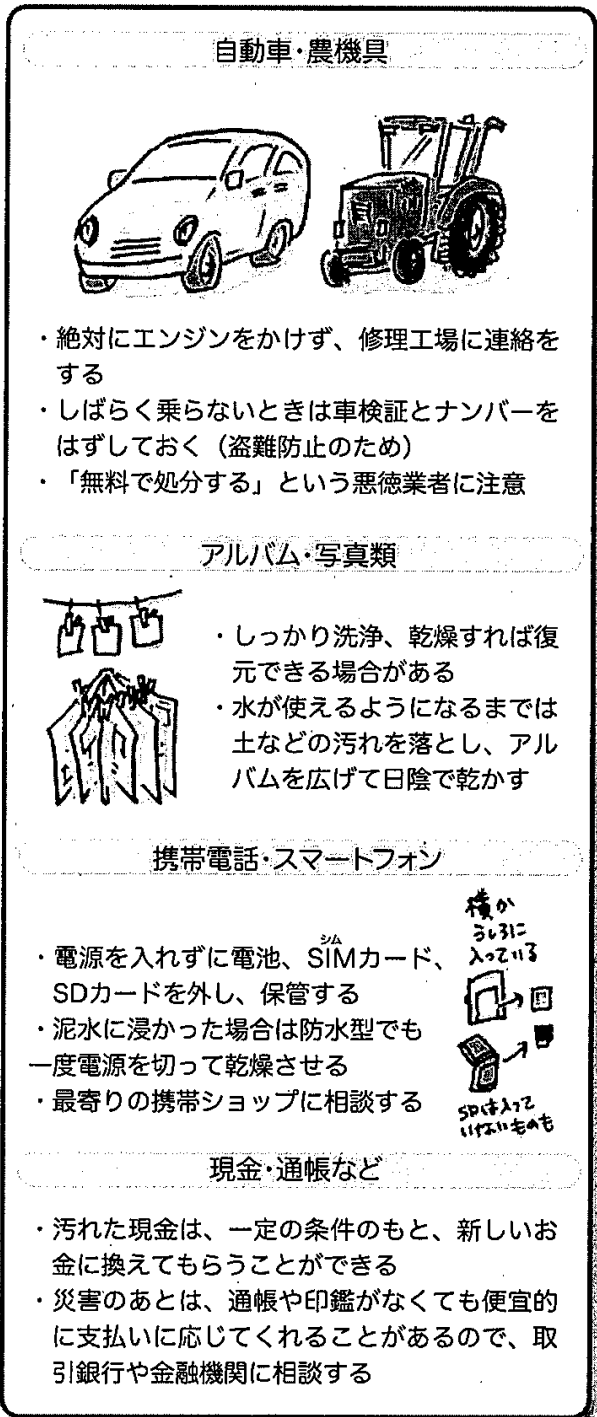 自動車・農機具
・絶対にエンジンをかけず、修理工場に連絡を
する
・しばらく乗らないときは車検証とナンバーを
はずしておく（盗難防止のため）
・「無料で処分する」という悪徳業者に注意
アルバム・写真類
・しっかり洗浄、乾燥すれば復
元できる場合がある
・水が使えるようになるまでは
土などの汚れを落とし、アル
バムを広げて日陰で乾かす
携帯電話・スマートフォン
・電源を入れずに電池、SIMカード、
シム
SDカードを外し、保管する
・泥水に浸かった場合は防水型でも
一度電源を切って乾燥させる
・最寄りの携帯ショップに相談する
横か
うしろに
入っている
SDは入って
いないものも
現金・通帳など
・汚れた現金は、一定の条件のもと、新しいお
金に換えてもらうことができる
・災害のあとは、通帳や印鑑がなくても便宜的
に支払いに応じてくれることがあるので、取
引銀行や金融機関に相談する